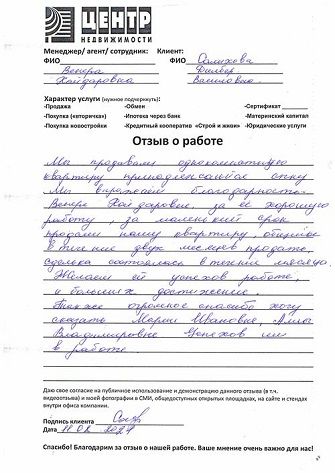 ЦЕНТР
НЕДВИЖИМОСТИ
Менеджер/ агент/ сотрудник: Клиент:
ФИО ФИО Салихова
Венера Дилвер
Хайдаровна
Характер услуги (нужное подчеркнуть):
-Продажа -Обмен -Сертификат
-Покупка (вторичка) -Ипотека через банк -Материнский капитал
-Покупка новостройки -Кредитный кооператив «Строй и живи» -Юридические услуги
Отзыв о работе
Мы продавали однокомнатную
квартиру принадлежавшую
Мы выражаем благодарность
Венере Хайдаровне, за ее хорошую
работу, за маленький срок
продали нашу квартиру,
в течение двух месяцев
сделка состоялась в течении месяца.
Желаем ей успехов работе,
и больших достижений.
Также огромное спасибо хочу
сказать Марии Ивановне,
Владимировне Успехов им
в работе.
Даю свое согласие на публичное использование и демонстрацию данного отзыва (в т.ч.
видеоотзыва) и моей фотографии в СМИ, общедоступных открытых площадках, на сайте и стендах
внутри офиса компании.
Подпись клиента
Дата
Спасибо! Благодарим за отзыв о нашей работе. Ваше мнение очень важно для нас!